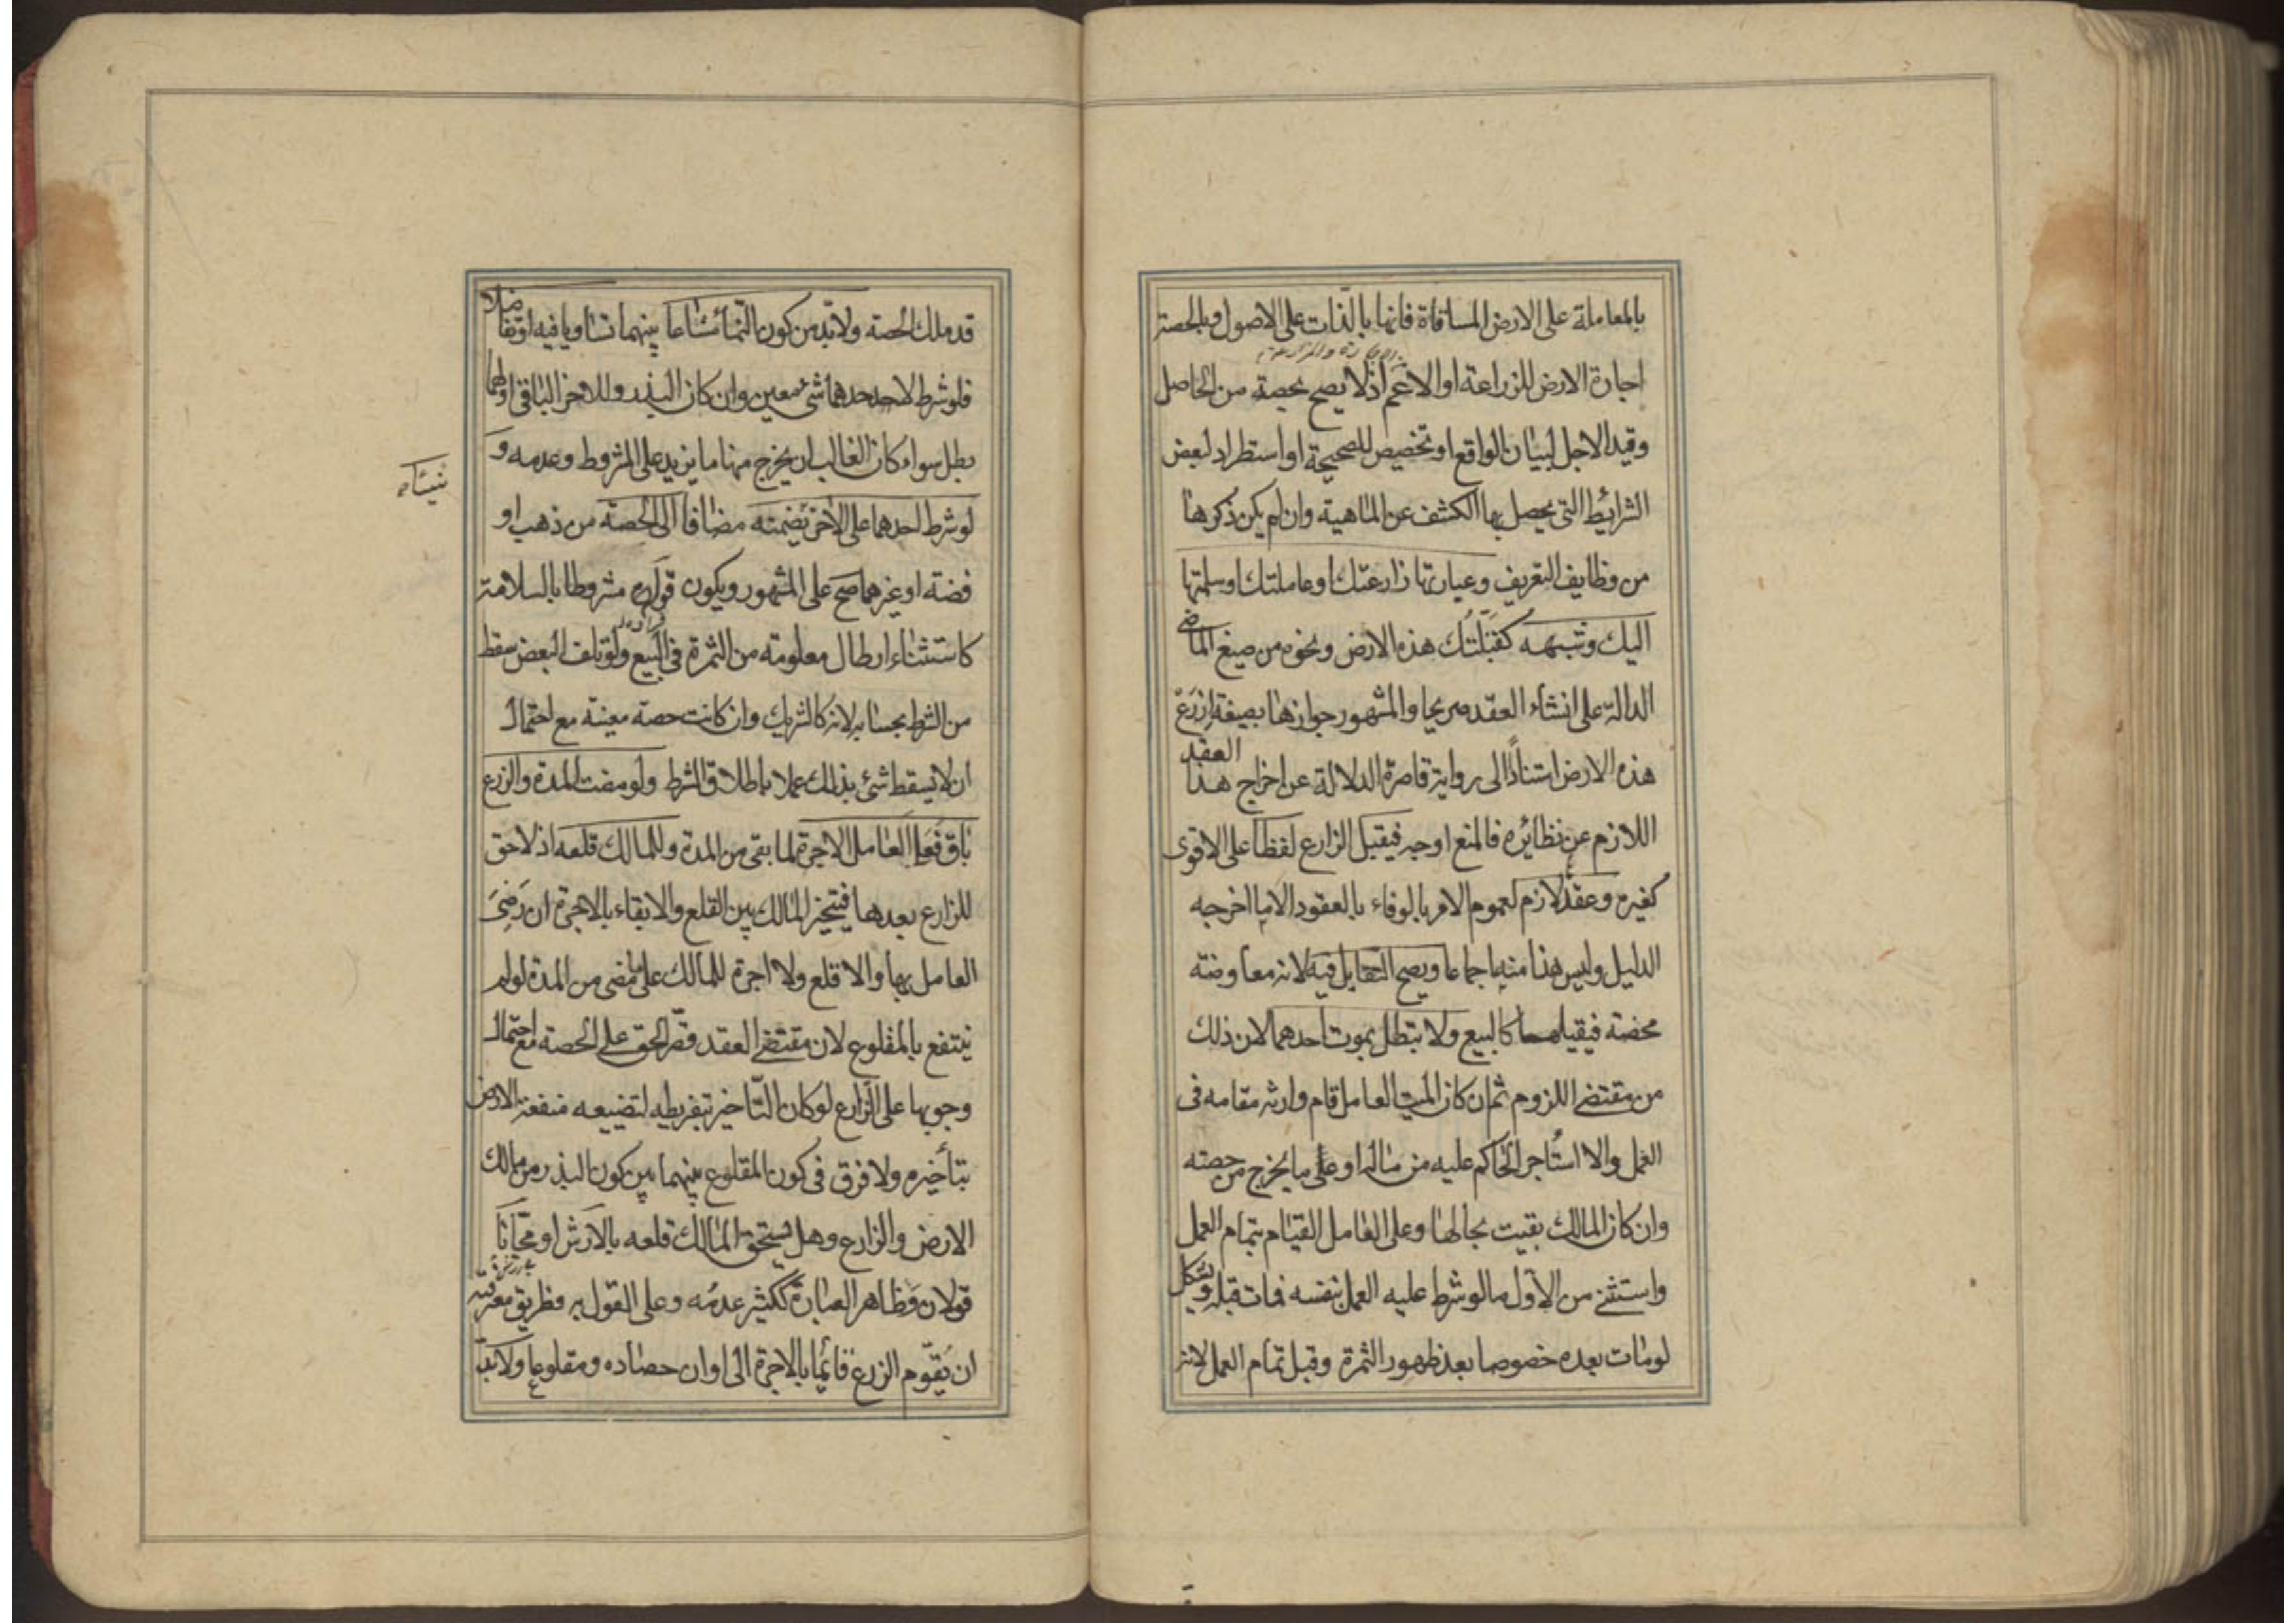 بالمعاملة على الارض المساقاة فانها بالذات على الاصول وبالحصة
اجارة الارض للزراعة او الاعم اذ لا يصح بحصة من الحاصل
وقيد الاجل لبيان الواقع او تخصيص للصحيحة او استطراد لبعض
الشرائط التى يحصل بها الكشف عن الماهية وان لم يكن ذكرها
من وظايف التعريف وعبارتها زارعتك او عاملتك او سلمتها
اليك وشبهه كقبّلتُك هذه الارض ونحوه من صيغ الماضى
الدالة على انشاء العقد صريحا والمشهور جوازها بصيغة ازرع
هذه الارض استنادًا الى رواية قاصرة الدلالة عن اخراج هذا العقد
اللازم عن نظائره فالمنع اوجه فيقبل الزارع لفظا على الاقوى
كغيره وعقد لازم لعموم الامر بالوفاء بالعقود الا ما اخرجه
الدليل وليس هذا منه اجماعا ويصح التقايل فيه لانه معاوضة
محضة فيقبلها كالبيع ولا تبطل بموت احدهما لان ذلك
من مقتضى اللزوم ثم ان كان الميت العامل قام وارثه مقامه فى
العمل والا استأجر الحاكم عليه من ماله او على ما يخرج من حصته
وان كان المالك بقيت بحالها وعلى العامل القيام بتمام العمل
واستثنى من الاول ما لو شرط عليه العمل بنفسه فمات قبله ويشكل
لو مات بعده خصوصا بعد ظهور الثمرة وقبل تمام العمل لانه
قد ملك الحصة ولا بّد من كون النّماء مشاعا بينهما تساويا فيه او تفاضلا
فلو شرط لاحدهما شئ معين وان كان البذر وللاخر الباقى او لهما
بطل سواء كان الغالب ان يخرج منها ما يزيد على المشروط وعدمه و
لو شرط احدهما على الاخر يضمنه مضافا الى الحصة من ذهب او
فضة او غيرهما صح على المشهور ويكون قراره مشروطا بالسلامة
كاستثناء ارطال معلومة من الثمرة فى البيع ولو تلف البعض سقط
من الشرط بحسابه لانه كالشريك وان كانت حصة معينة مع احتمال
ان لا يسقط شئ بذلك عملا باطلاق الشرط ولو مضت المدة والزرع
باق فعلى العامل الاجرة لما بقى من المدة وللمالك قلعه اذ لا حق
للزارع بعدها فيتخير المالك بين القلع والابقاء بالاجرة ان رَضِىَ
العامل بها والا قلع ولا اجرة للمالك على ما مضى من المدة لو لم
ينتفع بالمقلوع لان مقتضى العقد قصر الحق على الحصة مع احتمال
وجوبها على الزارع لو كان التاخير بتفريطه لتضييعه منفعة الارض
بتأخيره ولا فرق فى كون المقلوع بينهما بين كون البذر من مالك
الارض والزارع وهل يستحق المالك قلعه بالارش او مجّانا
قولان وظاهر العبارة ككثير عدمُه وعلى القول به فطريق معرفته
ان يُقوّم الزرع قائما بالاجرة الى اوان حصاده ومقلوعا